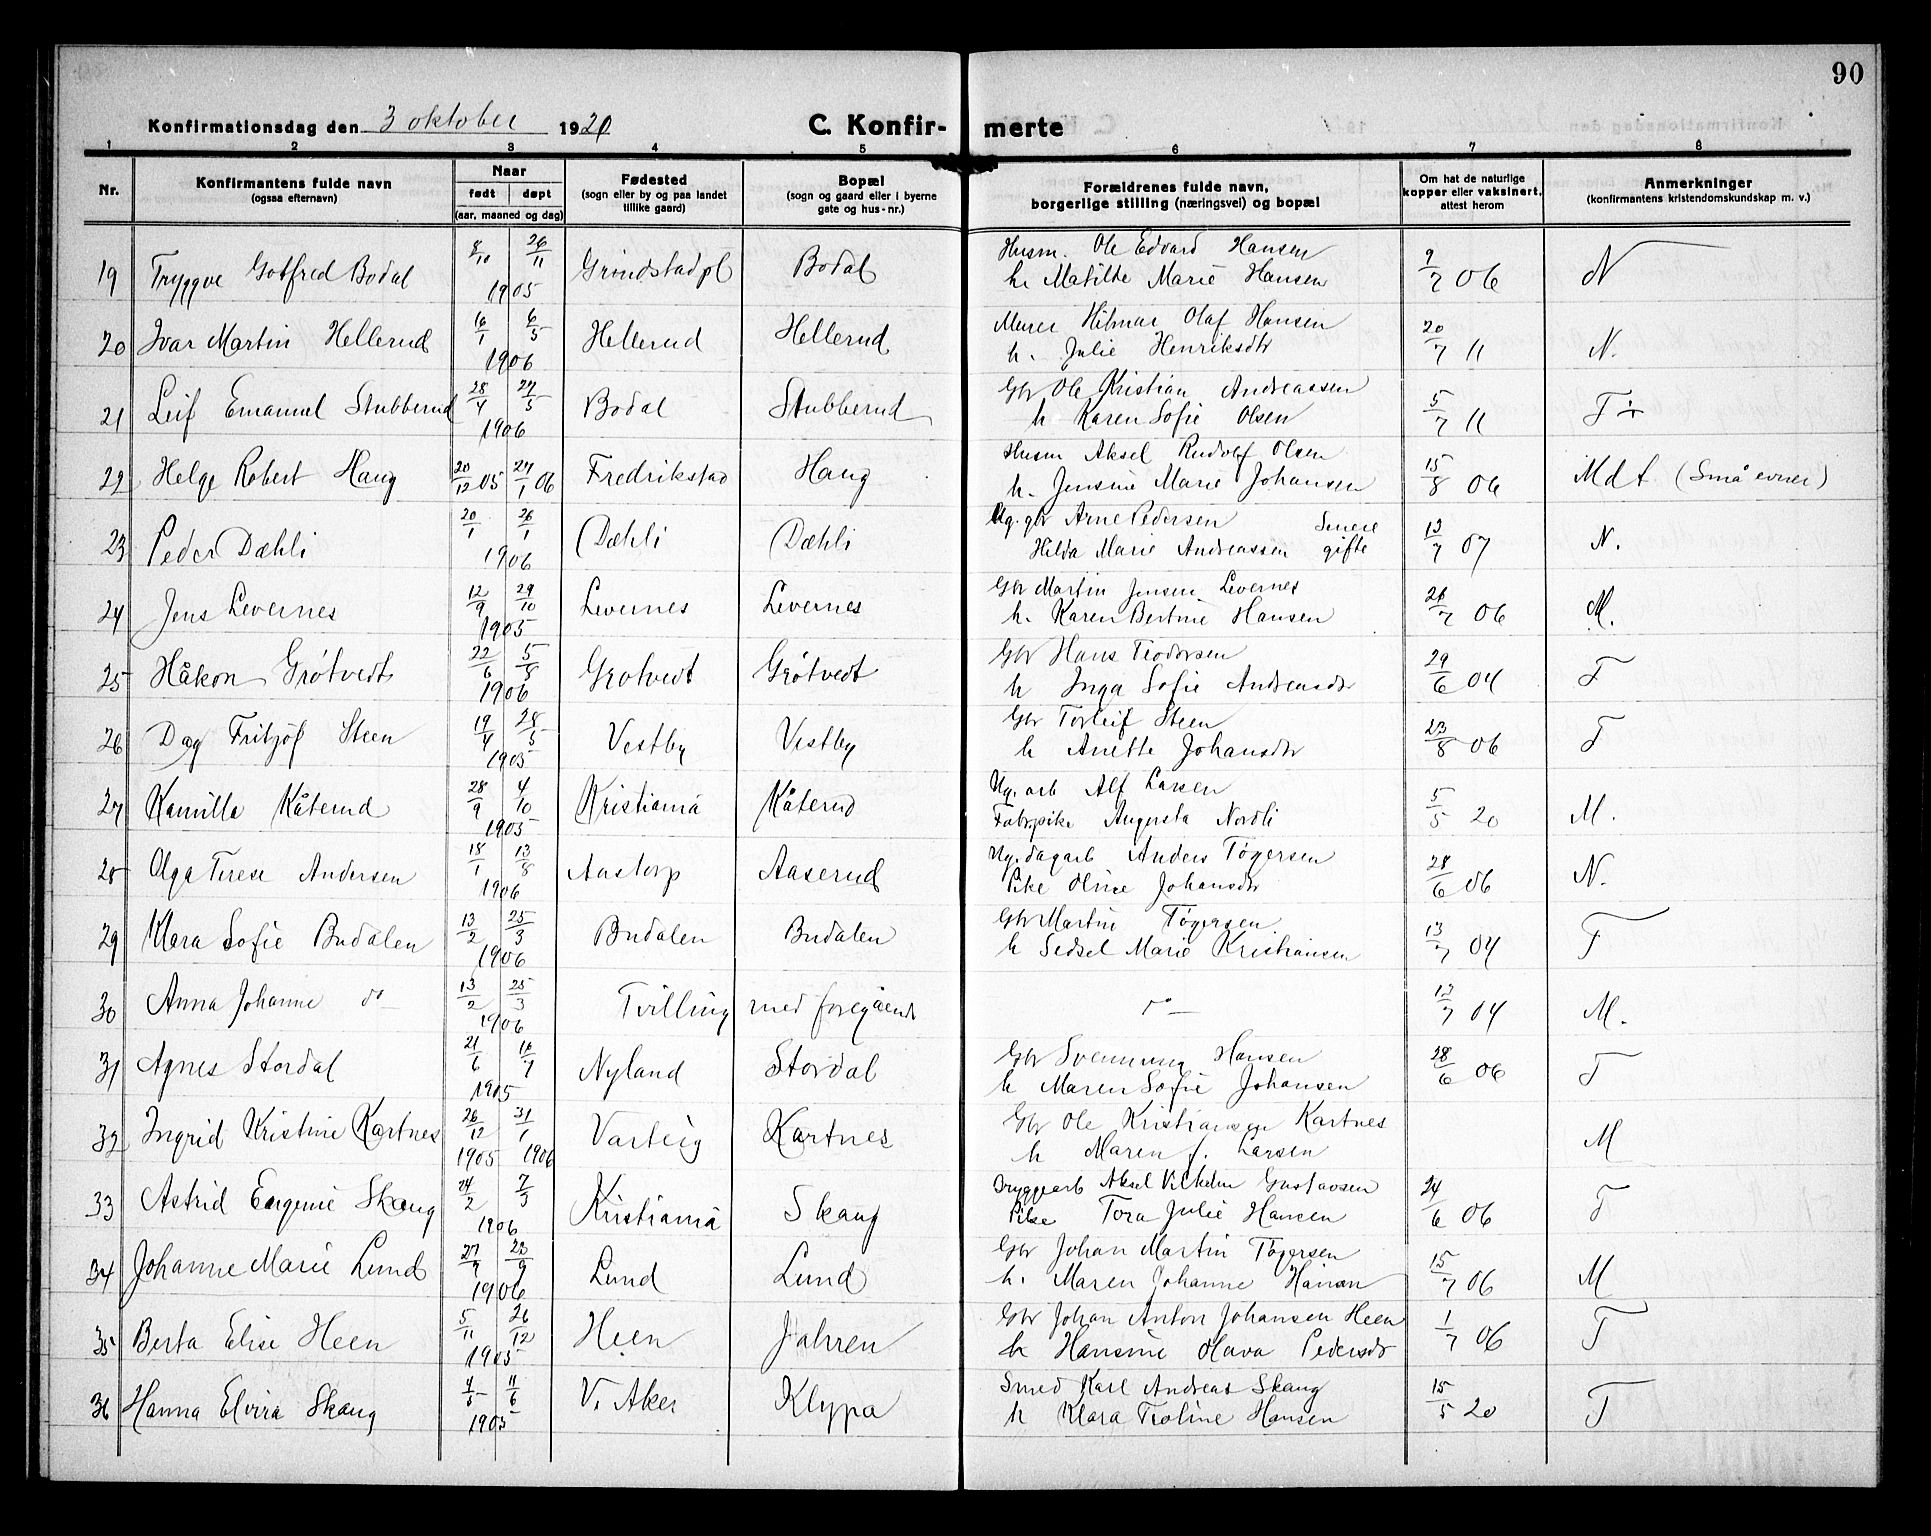 90
Konfirmationsdag den 3 oktober 1920 C. Konfirmerte
1 2 3 4 5 6 7 8
Nr. Konfirmantens fulde navn (ogsaa efternavn) Naar født døpt (aar, maaned og dag) Fødested (sogn eller by og paa landet tillike gaard) Bopæl (sogn og gaard eller i byerne gate og hus-nr.) Forældrenes fulde navn, borgerlige stilling (næringsvei) og bopæl Om hat de naturlige kopper eller vaksinert, attest herom Anmerkninger (konfirmantens kristendomskundskap m. v.)
19 Tryggve Gotfred Bodal 8/10 26/11 1905 Grindstadpl Bodal Husm. Ole Edvard Hansen h. Matilde Marie Hansen 9/7 06 N
20 Ivar Martin Hellerud 16/1 6/5 1906 Hellerud Hellerud Murer Hilmar Olaf Hansen h. Julie Henriksdtr 20/7 11 N.
21 Leif Emanuel Stubberud 28/4 27/5 1906 Bodal Stubberud Gbr Ole Kristian Andreassen h Karen Sofie Olsen 5/7 11 T÷
22 Helge Robert Haug 20/12 05 27/1 06 Fredrikstad Haug Husm Aksel Rudolf Olsen h. Jensine Marie Johansen 15/8 06 Mdt (Små evner)
23 Peder Dæhli 20/1 26/1 1906 Dæhli Dæhli Ug. gbr Arne Pedersen Hilda Marie Andreassen Senere gifte 13/7 07 N.
24 Jens Levernes 12/9 29/10 1905 Levernes Levernes Gbr Martin Jensen Levernes h. Karen Bertine Hansen 26/7 06 M.
25 Håkon Grøtvedt 22/6 5/8 1906 Grøtvedt Grøtvedt Gbr Hans Teodorsen h Inga Sofie Andreasdtr 29/6 04 T
26 Dag Fritjof Steen 19/4 28/5 1905 Vestby Vestby Gbr Torleif Steen h Anette Johansdtr 23/8 06 T
27 Kamilla Kåterud 28/9 4/10 1905 Kristiania Kåterud Ug. arb Alf Larsen Fabrpike Augusta Nordli 5/5 20 M.
28 Olga Terese Andersen 18/1 13/8 1906 Aastorp Aaserud Ug. dagarb Anders Tøgersen Pike Oline Johansdtr 28/6 06 N.
29 Klara Sofie Budalen 13/2 25/3 1906 Budalen Budalen Gbr Martin Tøgersen h Sedsel Marie Kristiansen 13/7 04 T
30 Anna Johanne do 13/2 25/3 1906 Tvilling med foregående do 13/7 04 M.
31 Agnes Stordal 21/6 16/7 1905 Nyland Stordal Gbr Svenning Hansen h Maren Sofie Johansen 28/6 06 T
32 Ingrid Kristine Kartnes 26/12 1905 31/1 1906 Varteig Kartnes Gbr Ole Kristiansen Kartnes h Maren J. Larsen M
33 Astrid Eugenie Skaug 24/2 7/3 1906 Kristiania Skaug Bryggearb Aksel Vilhelm Gustavsen Pike Tora Julie Hansen 24/6 06 T
34 Johanne Marie Lund 27/7 23/9 1906 Lund Lund Gbr Johan Martin Tøgersen h. Maren Johanne Hansen 15/7 06 M
35 Berta Elise Heen 5/11 26/12 1905 Heen Jahren Gbr Johan Anton Johansen Heen h Hansine Olava Pedersdtr 1/7 06 T
36 Hanna Elvira Skaug 4/5 11/6 1905 V. Aker Klypa Smed Karl Andreas Skaug h Klara Teoline Hansen 15/5 20 T